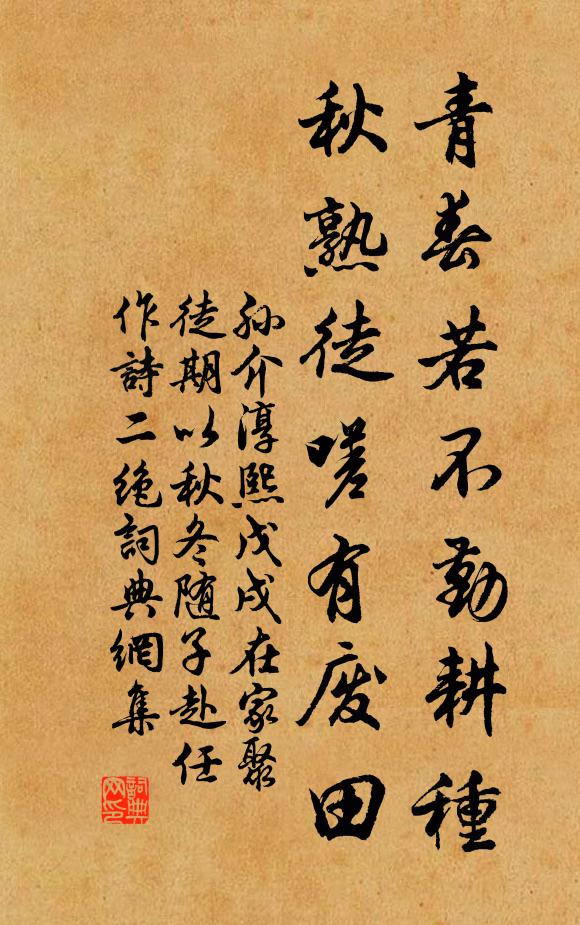 青春若不勤耕種
秋熟徒嗟有廢田
孫介淳熙戊戌在家聚
徒期以秋冬隨子赴任
作詩二絕詞典網集
詞典
网印